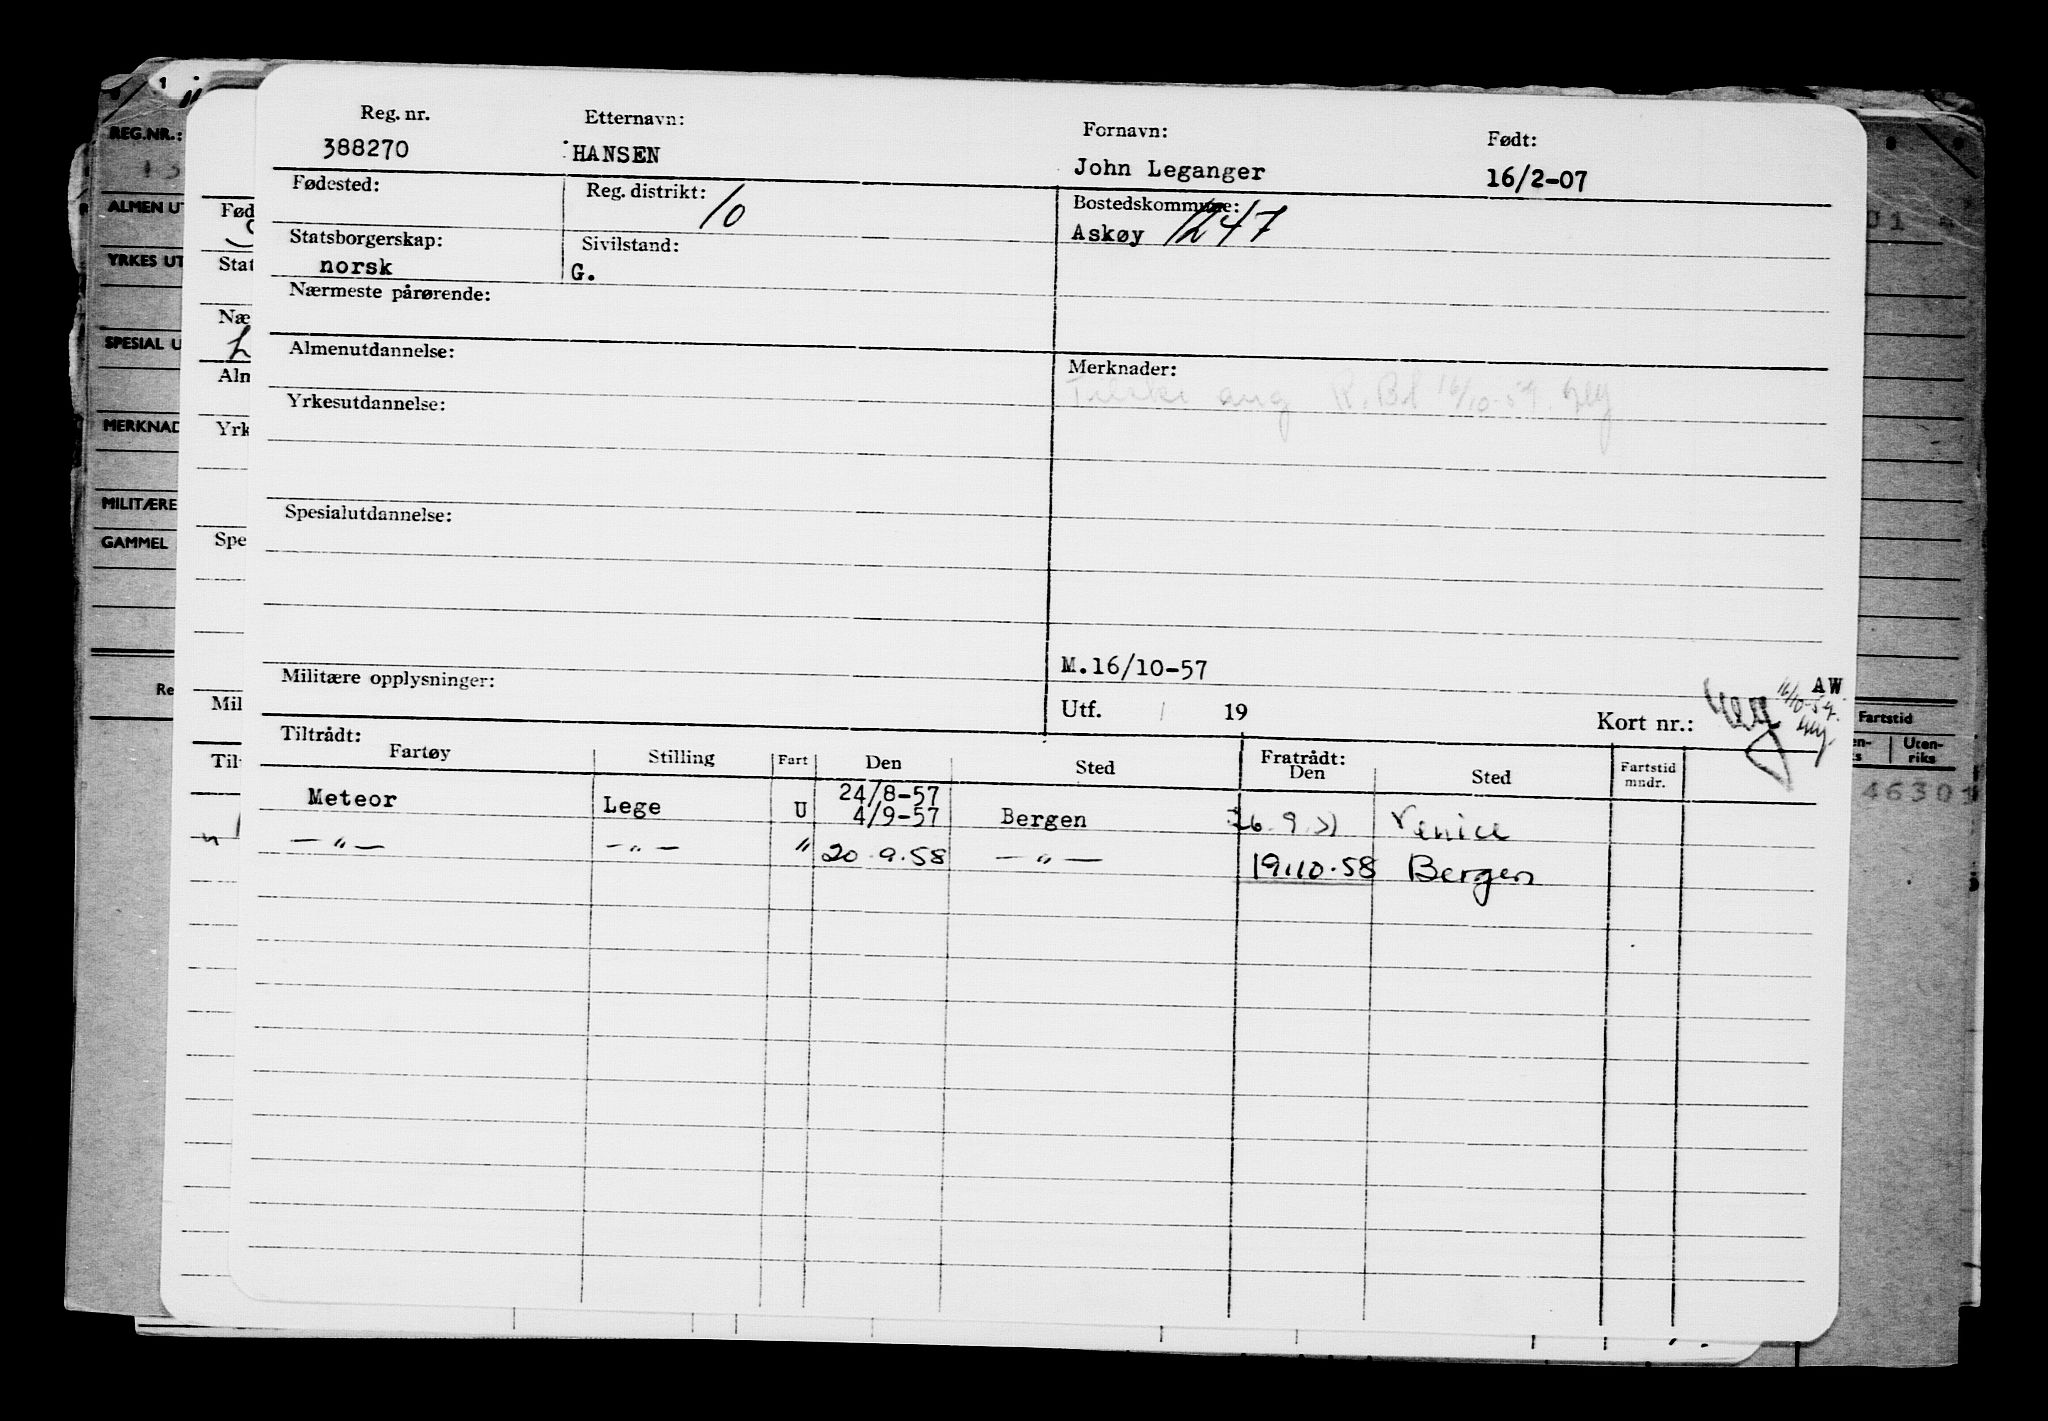 Reg. nr. Etternavn: Fornavn: Født:
388270 HANSEN John Leganger 16/2-07
Fødested: Reg. distrikt: 10 Bostedskommune:
Askøy 1247
Statsborgerskap: Sivilstand:
norsk G.
Nærmeste pårørende:
Almenutdannelse: Merknader:
ang 16/10-57
Yrkesutdannelse:
Spesialutdannelse:
M.16/10-57
Militære opplysninger:
AW
Utf. 19 Kort nr.:
Tiltrådt: Fratrådt:
Fartøy Stilling Fart Den Sted Den Sted Fartstid mndr.
Meteor Lege U 24/8-57
4/9-57 Bergen 26.9.57 Venice
— " — — " — " 20.9.58 — " — 19.10.58 Bergen
REG.NR.:
ALMEN UT
YRKES UT
SPESIAL U
MERKNAD
MILITÆRE
GAMMEL
Re
Fød
Stat
Næ
Alm
Yrk
Spe
Mil
Til
Fartstid
Uten-
riks
46301